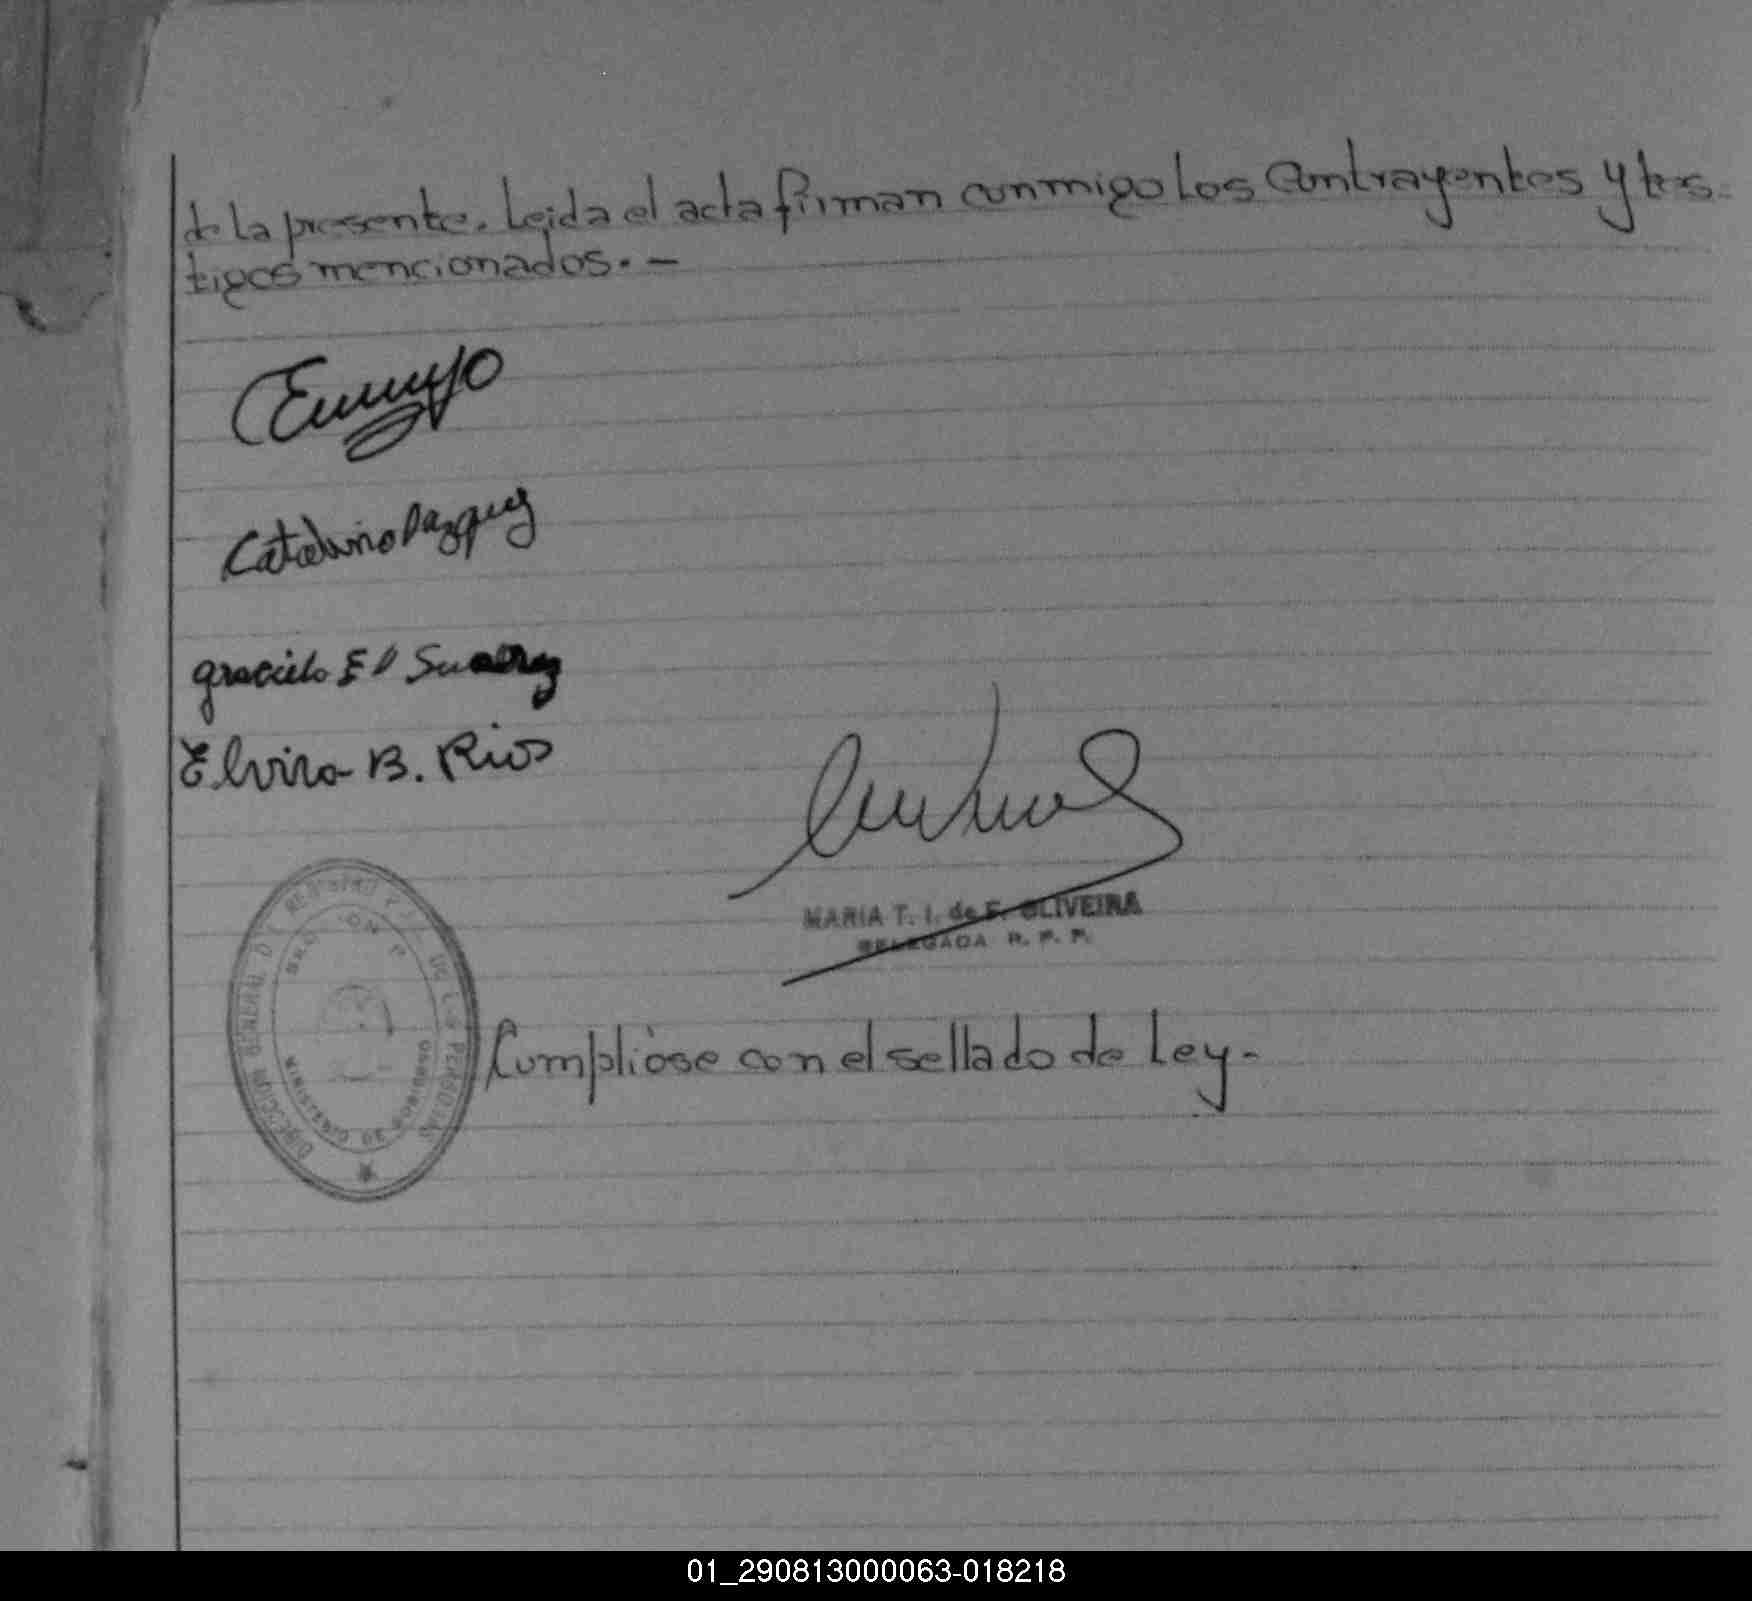 de la presente. Leida el acta firman conmigo los contrayentes y tes-
tigos mencionados. —
Catalino Vazquez
Graciela E Suarez
Elvira B. Rios
MARIA T. I. de F. OLIVEIRA
DELEGADA R. P. P.
DIRECCION GENERAL DEL REGISTRO DE LAS PERSONAS
MINISTERIO DE GOBIERNO
Cumplióse con el sellado de Ley-
01_290813000063-018218